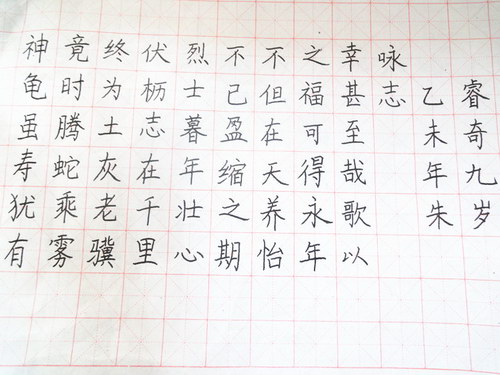 神龟虽寿犹有
竟时腾蛇乘雾
终为土灰老骥
伏枥志在千里
烈士暮年壮心
不已盈缩之期
不但在天养怡
之福可得永年
幸甚至哉歌以
咏志
乙未年朱
睿奇九岁